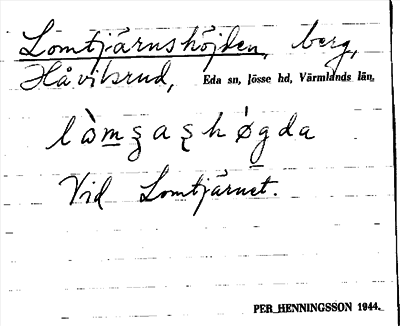 Lomtjärnshöjden, berg,
Håvilsrud, Eda sn, Jösse hd, Värmlands län,
lòmʒaʂhǿgda
Vid Lomtjärnet.
PER HENNINGSSON 1944.